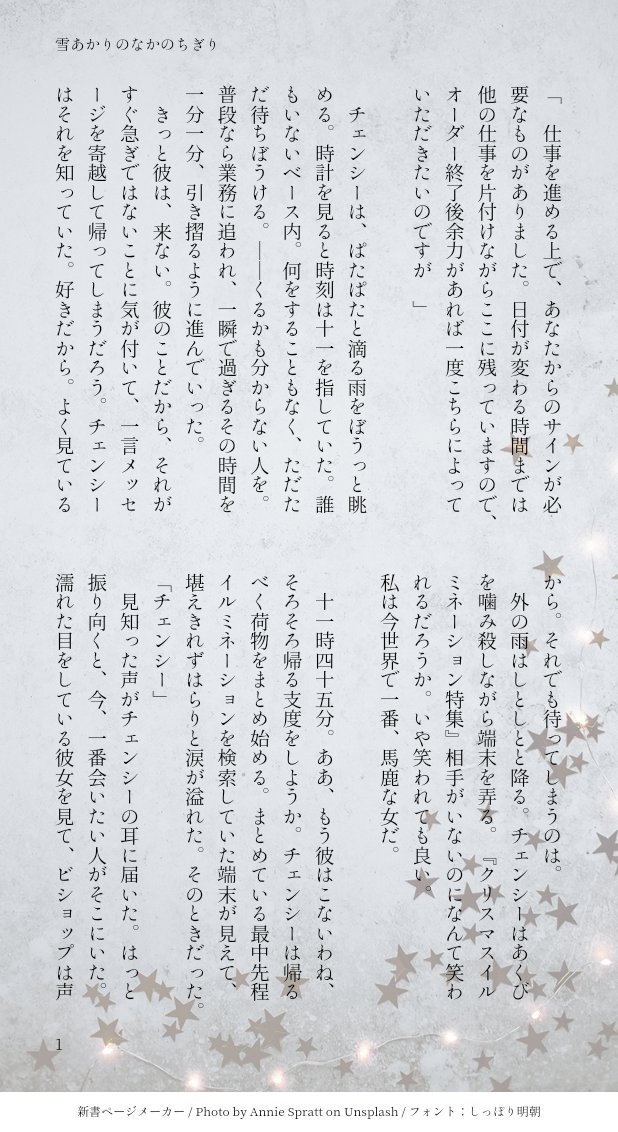 雪あかりのなかのちぎり
「　仕事を進める上で、あなたからのサインが必
要なものがありました。日付が変わる時間までは
他の仕事を片付けながらここに残っていますので、
オーダー終了後余力があれば一度こちらによって
いただきたいのですが　」
チェンシーは、ぱたぱたと滴る雨をぼうっと眺
める。時計を見ると時刻は十一を指していた。誰
もいないベース内。何をすることもなく、ただた
だ待ちぼうける。――くるかも分からない人を。
普段なら業務に追われ、一瞬で過ぎるその時間を
一分一分、引き摺るように進んでいった。
きっと彼は、来ない。彼のことだから、それが
すぐ急ぎではないことに気が付いて、一言メッセ
ージを寄越して帰ってしまうだろう。チェンシー
はそれを知っていた。好きだから。よく見ている
から。それでも待ってしまうのは。
外の雨はしとしとと降る。チェンシーはあくび
を噛み殺しながら端末を弄る。『クリスマスイル
ミネーション特集』相手がいないのになんて笑わ
れるだろうか。いや笑われても良い。
私は今世界で一番、馬鹿な女だ。
十一時四十五分。ああ、もう彼はこないわね、
そろそろ帰る支度をしようか。チェンシーは帰る
べく荷物をまとめ始める。まとめている最中先程
イルミネーションを検索していた端末が見えて、
堪えきれずはらりと涙が溢れた。そのときだった。
「チェンシー」
見知った声がチェンシーの耳に届いた。はっと
振り向くと、今、一番会いたい人がそこにいた。
濡れた目をしている彼女を見て、ビショップは声
1
新書ページメーカー / Photo by Annie Spratt on Unsplash / フォント：しっぽり明朝